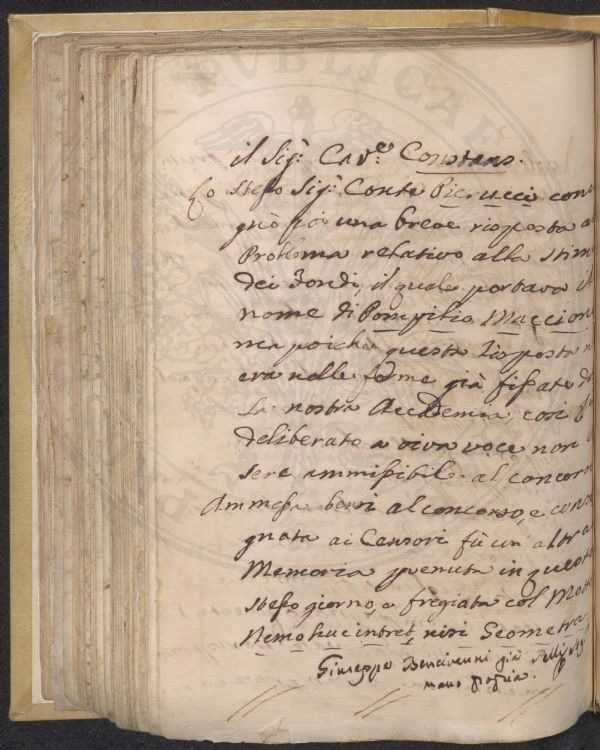 il Sig.r Cav.re Constans.
Lo stesso Sig.r Conte Pierucci con
gnò poi una breve risposta a
Problema relativo alla stim
dei Fondi, il quale portava il
nome di Pompilio Maccion
ma poichè questa Risposta n
era nelle forme già fissate da
la nostra Accademia, così f
deliberato a viva voce non
sere ammissibile al concorso
Ammessa bensì al concorso, e cons
gnata ai Censori fù un' altra
Memoria venuta in questo
stesso giorno, e fregiata col Motto
Nemo huc intret, nisi Geometra
Giuseppe Bencivenni già Pelli
mano propria.
PVBLICAE